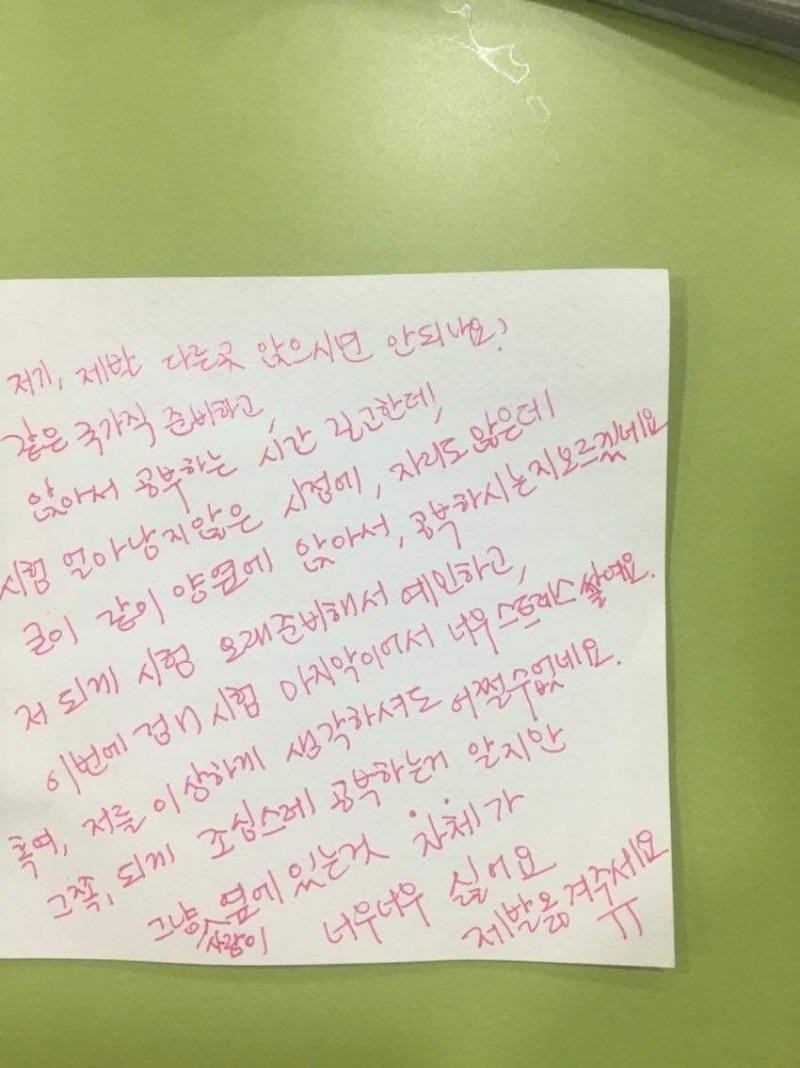 저기, 제발 다른곳 앉으시면 안되나요?
같은 국가직 준비하고,
앉아서 공부하는 시간 길고한데,
시험 얼마남지않은 시점에, 자리도 많은데
굳이 같이 양옆에 앉아서, 공부하시는지모르겠네요
저 되게 시험 오래준비해서 예민하고,
이번에 겸 시험 마지막이어서 너무스트레스 쌓여요.
혹여, 저를 이상하게 생각하셔도 어쩔수없네요.
그쪽, 되게 조심스레 공부하는거 알지만
그냥 사람이 옆에있는것 자체가
너무너무 싫어요
제발옮겨주세요
ㅠ